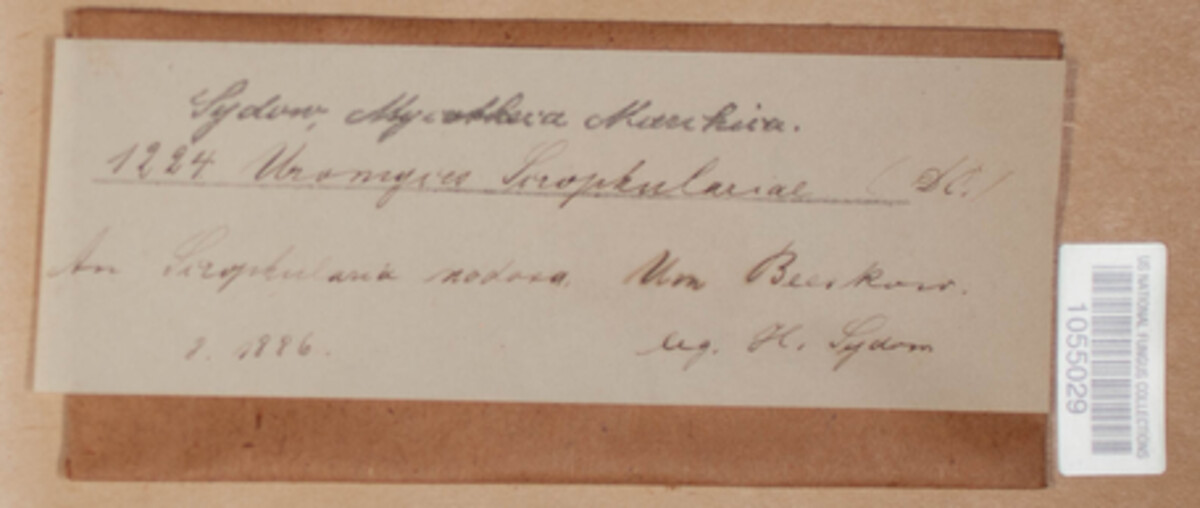 Sydow, Mycotheca Marchica.
1224 Uromyces Scrophulariae (DC.)
An Scrophularia nodosa. Um Beeskow.
8. 1886. leg. H. Sydow
US NATIONAL FUNGUS COLLECTIONS
1055029